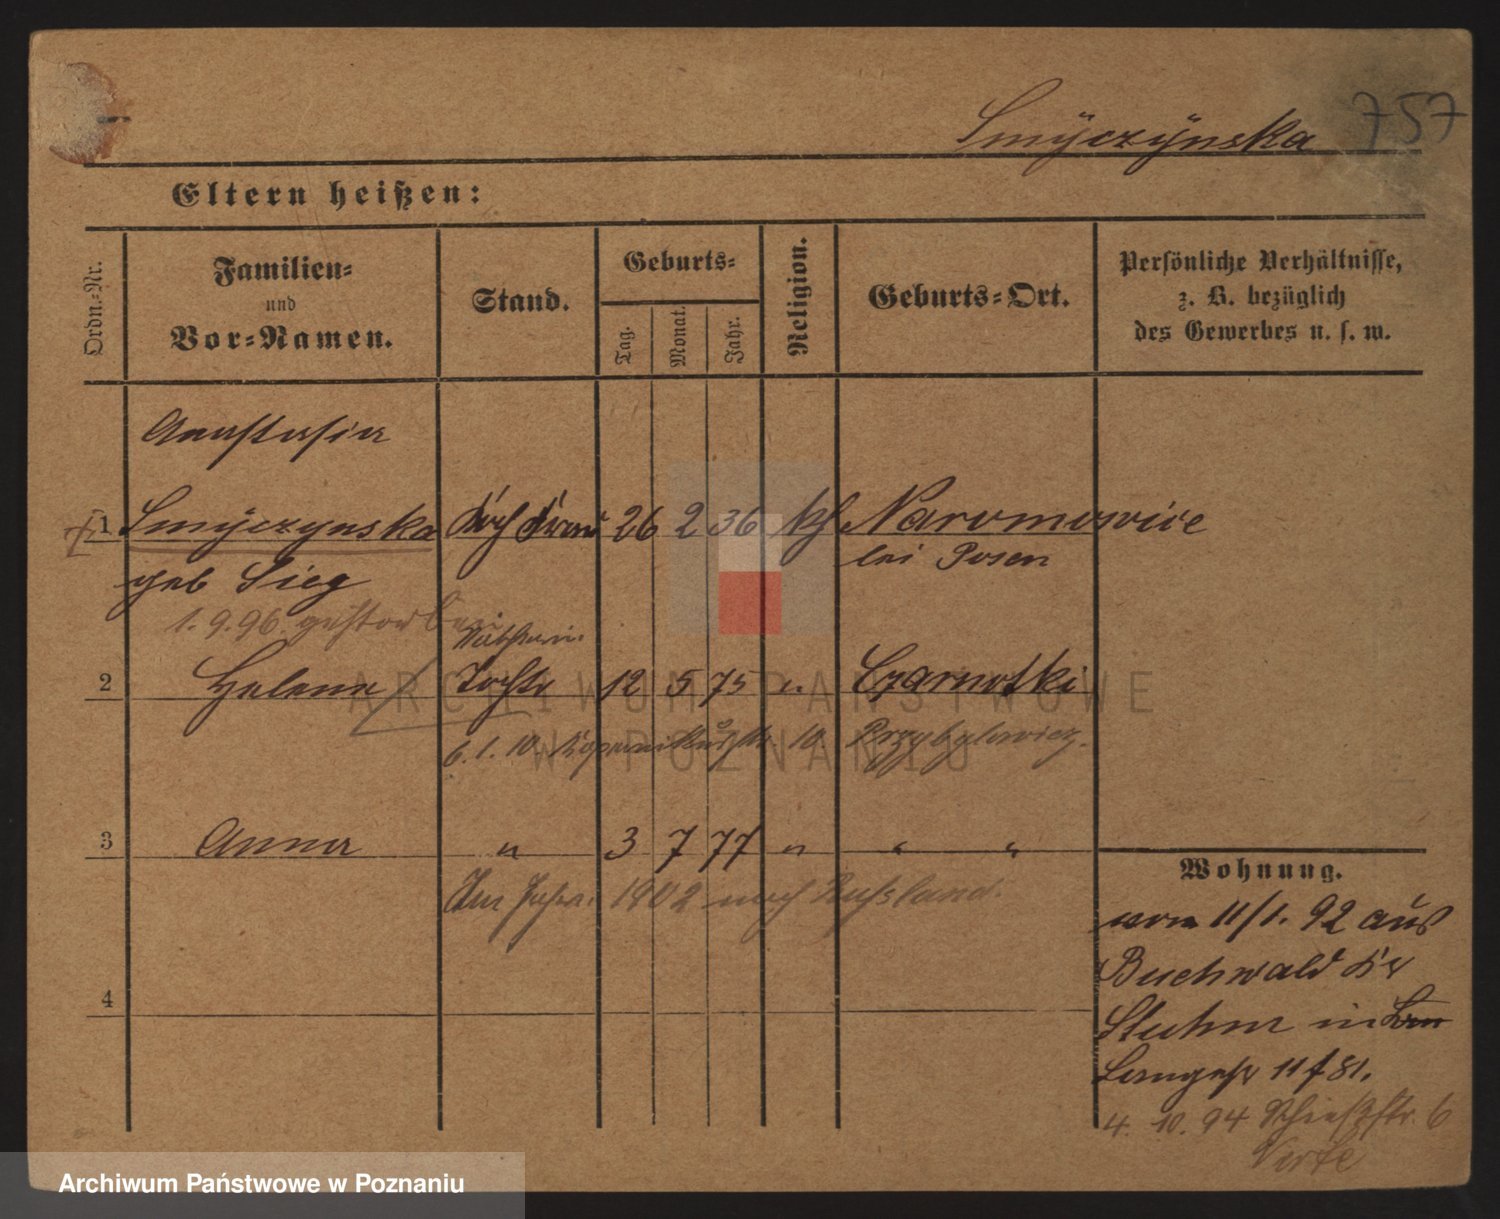 Smÿczÿnska 757
Eltern heißen:
Ordn.-Nr.
Familien-
und
Vor-Namen.
Stand.
Geburts-
Tag.
Monat.
Jahr.
Religion.
Geburts-Ort.
Persönliche Verhältnisse,
z. B. bezüglich
des Gewerbes u. s. w.
Anastasia
1 Smÿczynska 26 2 36 kth Naromowice
geb Sieg bei Posen
1.9.96 gestorben
2 Helene Tochter 12 5 75 " Czarnotki
6.1.10. 10 Przybylowicz.
3 Anna " 3 7 77 " " "
Im Jahre 1902 nach Russland.
4
Wohnung.
vom 11/1. 92 aus
Buchwald Kr
Stuhm in
Langestr 11 f 81.
4. 10. 94 Schießstr. 6
Verte
ARCHIWUM PAŃSTWOWE
W POZNANIU
Archiwum Państwowe w Poznaniu